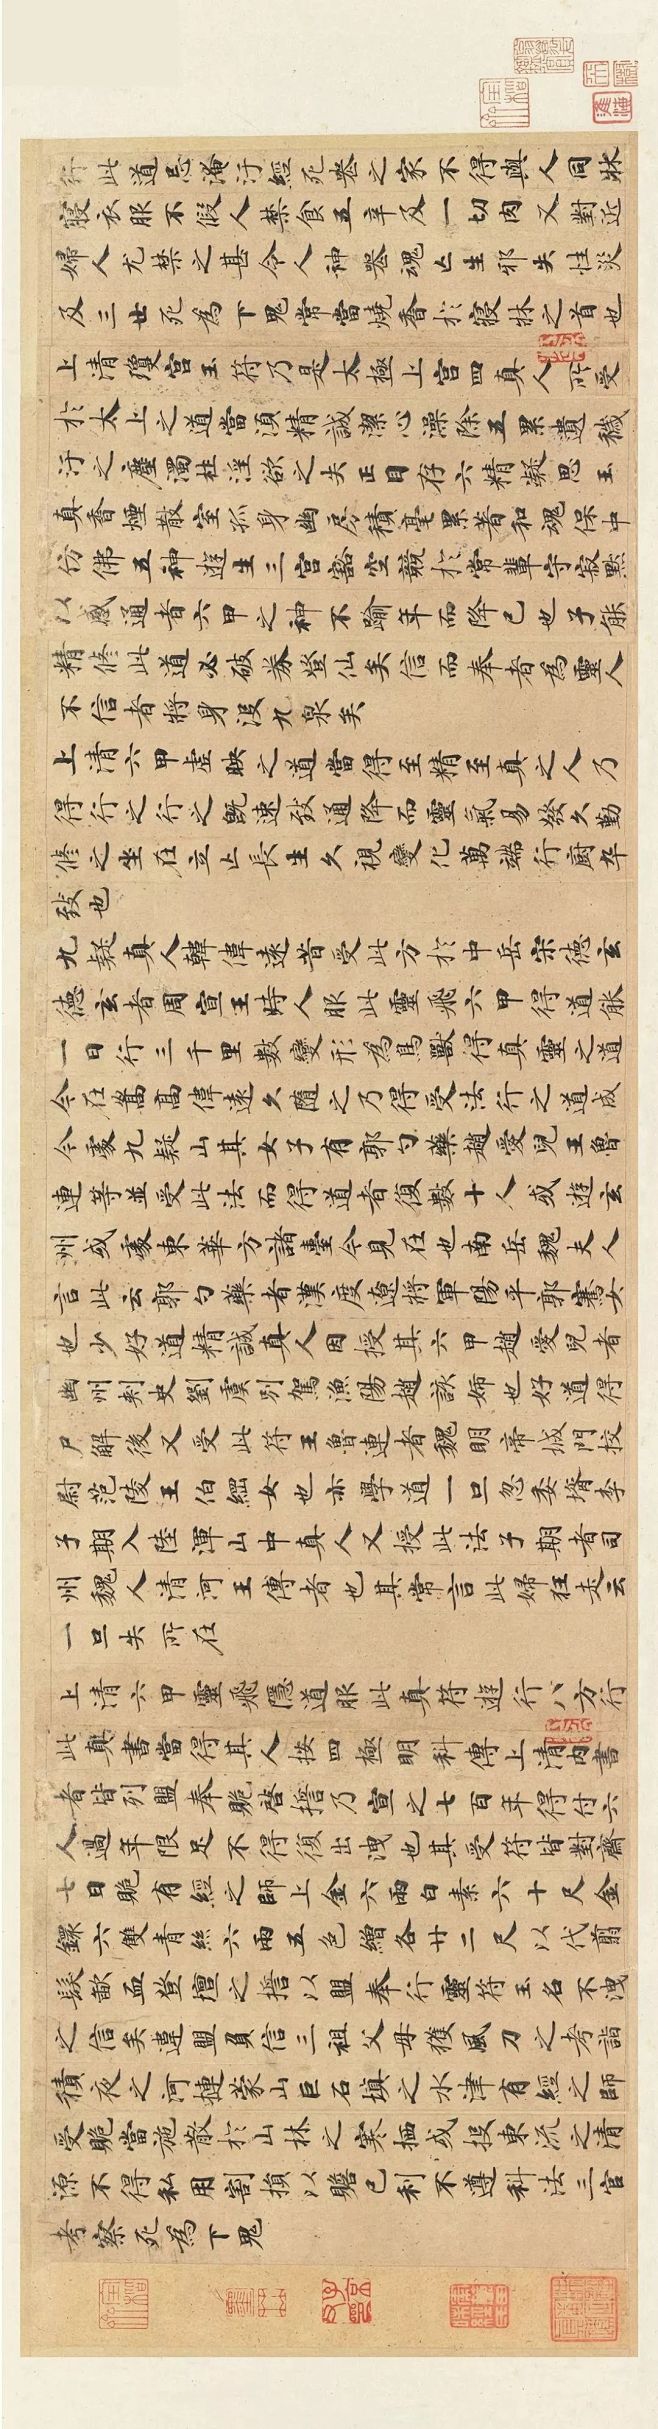 行此道忌淹汙經死喪之家不得與人同牀
寢衣服不假人禁食五辛及一切肉又對近
婦人尤禁之甚令人神喪魂亡生邪失性災
及三世死為下鬼常當燒香於寢牀之首也
上清瓊宮玉符乃是太極上宮四真人所受
於太上之道當須精誠潔心澡除五累遺穢
汙之塵濁杜淫欲之失正目存六精凝思玉
真香煙散室孤身幽房積毫累著和魂保中
仿佛五神遊生三宮豁空競於常輩守寂默
以感通者六甲之神不踰年而降已也子能
精修此道必破券登仙矣信而奉者為靈人
不信者將身沒九泉矣
上清六甲虛映之道當得至精至真之人乃
得行之行之既速致通降而靈氣易發久勤
修之坐在立亡長生久視變化萬端行廚卒
致也
九疑真人韓偉遠昔受此方於中岳宋德玄
德玄者周宣王時人服此靈飛六甲得道能
一日行三千里數變形為鳥獸得真靈之道
今在嵩高偉遠久隨之乃得受法行之道成
今處九疑山其女子有郭勺藥趙愛兒王魯
連等並受此法而得道者復數十人或遊玄
州或處東華方諸臺今見在也南岳魏夫人
言此云郭勺藥者漢度遼將軍陽平郭騫女
也少好道精誠真人因授其六甲趙愛兒者
幽州刺史劉虞別駕漁陽趙該姊也好道得
尸解後又受此符王魯連者魏明帝城門校
尉范陵王伯綱女也亦學道一旦忽委壻李
子期入陸渾山中真人又授此法子期者司
州魏人清河王傳者也其常言此婦狂走云
一旦失所在
上清六甲靈飛隱道服此真符遊行八方行
此真書當得其人按四極明科傳上清內書
者皆列盟奉贶啓擔乃宣之七百年得付六
人過年限足不得復出洩也其受符皆對齋
七日贶有經之師上金六兩白素六十尺金
鐶六雙青絲六兩五色繒各廿二尺以代翦
髮歃血登壇之擔以盟奉行靈符玉名不洩
之信矣違盟負信三祖父母獲風刀之考詣
積夜之河摙蒙山巨石填之水津有經之師
受贶當施散於山林之寒栖或投東流之清
源不得私用割損以贍已利不遵科法三官
考察死為下鬼